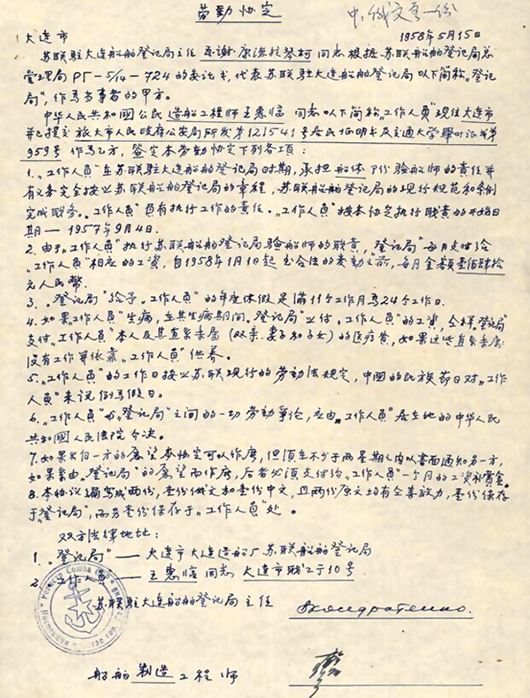 劳动协定
中、俄文各一份
大连市 1958年5月15日
苏联驻大连船舶登记局主任 同志根据苏联船舶登记局总
管理局РГ-5/14-724的委托书,代表苏联驻大连船舶登记局以下简称„登记
局",作为当事者的甲方。
中华人民共和国公民造船工程师王惠临同志以下简称„工作人员"现住大连市
并已提交旅大市人民政府公安局所发第121541号居民证明书及交通大学毕业证书第
959号作为乙方,签定本劳动协定下列各项:
1.„工作人员"在苏联驻大连船舶登记局时期,承担船体部份验船师的责任并
有义务完全按照苏联船舶登记局的章程,苏联船舶登记局的现行规范和条例
完成职务。„工作人员"负有执行工作的责任。„工作人员"按本协定执行职责的开始日
期—1957年9月4日。
2.由于„工作人员"执行苏联船舶登记局验船师的职责,„登记局"每月支付给
„工作人员"相应的工资,自1958年1月1日起至合法的变动之前,每月金额壹佰肆拾
元人民币。
3.„登记局"给予„工作人员"的年度休假是满11个工作月为24个工作日。
4.如果„工作人员"生病,在其生病期间„登记局"照付„工作人员"的工资,会same„登记局"
支付„工作人员"本人及其直系亲属(双亲、妻子和子女)的医疗费,如果这些直系亲属
没有工作并依靠„工作人员"供养。
5.„工作人员"的工作日按照苏联现行的劳动法规定,中国的民族节日对„工作人
员"来说例为假日。
6.„工作人员"与„登记局"之间的一切劳动争论,应由„工作人员"居住地的中华人民
共和国人民法院公决。
7.如果只归一方的愿望本协定可以作废,但须在不少于两星期之内以书面通知另一方,
如果系由„登记局"的愿望而作废,后者必须支付给„工作人员"一个月的工资补偿金。
8.本协议编写成两份,壹份俄文和壹份中文,且两份原文均有全等效力,壹份保存
于„登记局",而另壹份保存于„工作人员"处。
双方法律地址:
1.„登记局"——大连市大连造船厂苏联船舶登记局
2.„工作人员"——王惠临同志 大连市 10号
苏联驻大连船舶登记局主任
船舶制造工程师